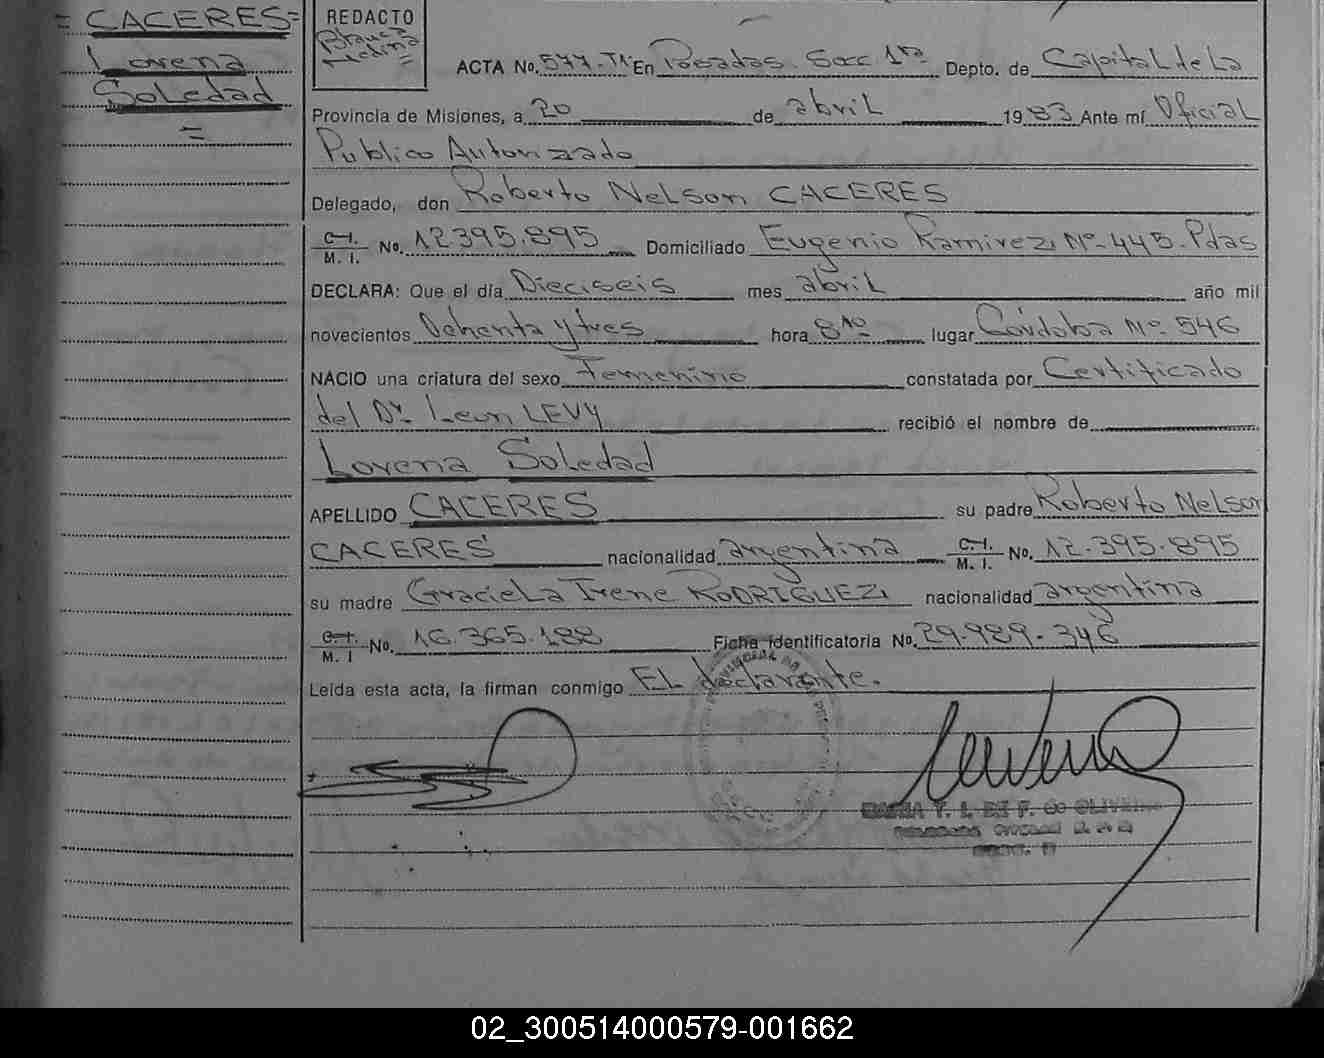 = CACERES =
Lorena
Soledad
=
REDACTO
Blanca
Medina
=
ACTA No. 577. T1 En Posadas. Secc. 1ra Depto. de Capital de La
Provincia de Misiones, a 20 de abril 1983 Ante mí Oficial
Publico Autorizado
Delegado, don Roberto Nelson CACERES
C.I. M. I. No. 12395.895 Domiciliado Eugenio Ramirez Nº 445. Pdas
DECLARA: Que el día Dieciseis mes abril año mil
novecientos Ochenta y tres hora 8 10 lugar Córdoba Nº 546
NACIO una criatura del sexo Femenino constatada por Certificado
del Dr. Leon LEVY recibió el nombre de
Lorena Soledad
APELLIDO CACERES su padre Roberto Nelson
CACERES nacionalidad argentina C.I. M. I. No. 12.395.895
su madre Graciela Irene RODRIGUEZ nacionalidad argentina
C.I. M. I No. 16.365.188 Ficha Identificatoria No. 29.989.346
Leída esta acta, la firman conmigo EL declarante.
MARIA T. I. DE F. de OLIVEIRA
02_300514000579-001662